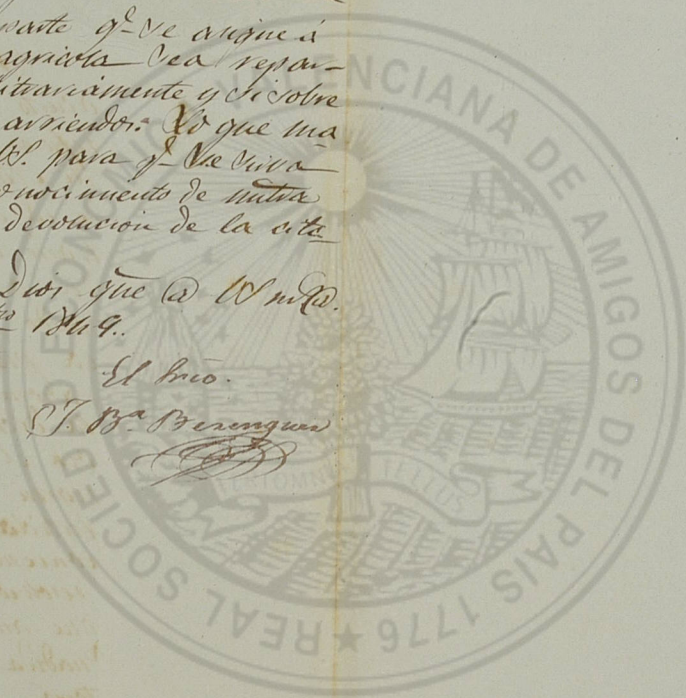 parte q.e se asigne á
agricola sea repar-
itrariamente y si sobre
arriendos. Lo que ma
VS. para q.e se sirva
onocimiento de nutra
devolucion de la cita
Dios gue @ VS m.s @.
1849.
El Srio.
J. Bta. Berenguer
REAL SOCIEDAD ECONOMICA VALENCIANA DE AMIGOS DEL PAIS 1776
FERT OMNIA TELLUS